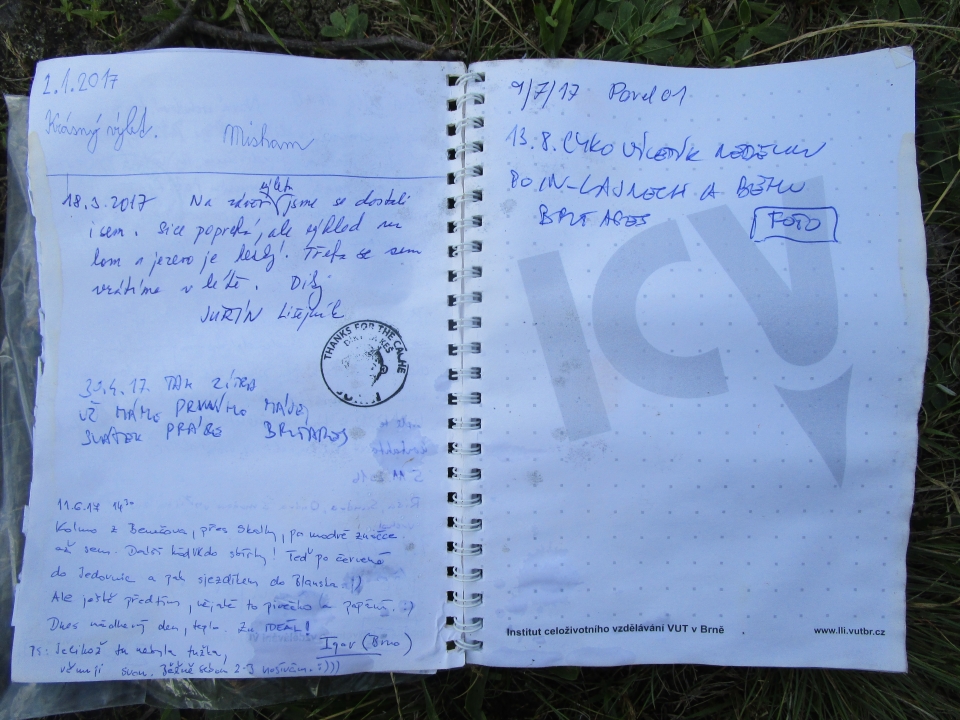 2.1.2017
Krásný výlet. Misham
18.3.2017 Na závěr výletu jsme se dostali
i sem. Sice poprchá, ale výhled na
lom a jezero je hezký! Třeba se sem
vrátíme v létě. Díky
JURTÍN
THANKS FOR THE CACHE
30.4.17. TAK ZÍTRA
UŽ MÁME PRVNÍHO MÁJE,
SVÁTEK PRÁCE BRTARES
11.6.17 14³⁰
Kolmo z Benešova, přes Skalky, po modré značce
až sem. Teď po červené
do Jedovnic a pak sjezdíkem do Blanska :))
Ale ještě předtím, nějaké to pivečko a papání. :)
Dnes nádherný den, teplo. IDEÁL!
Igor (Brno)
PS: Jelikož tu nebyla tužka,
věnuji svou. Běžně sebou 2-3 nosívám. :)))
9/7/17 Pavel01
13.8. CYKO VÝLETÍK NEDĚLNÍ
PO IN-LAJNECH A BĚHU
BRTARES FOTO
ICV
Institut celoživotního vzdělávání VUT v Brně www.lli.vutbr.cz